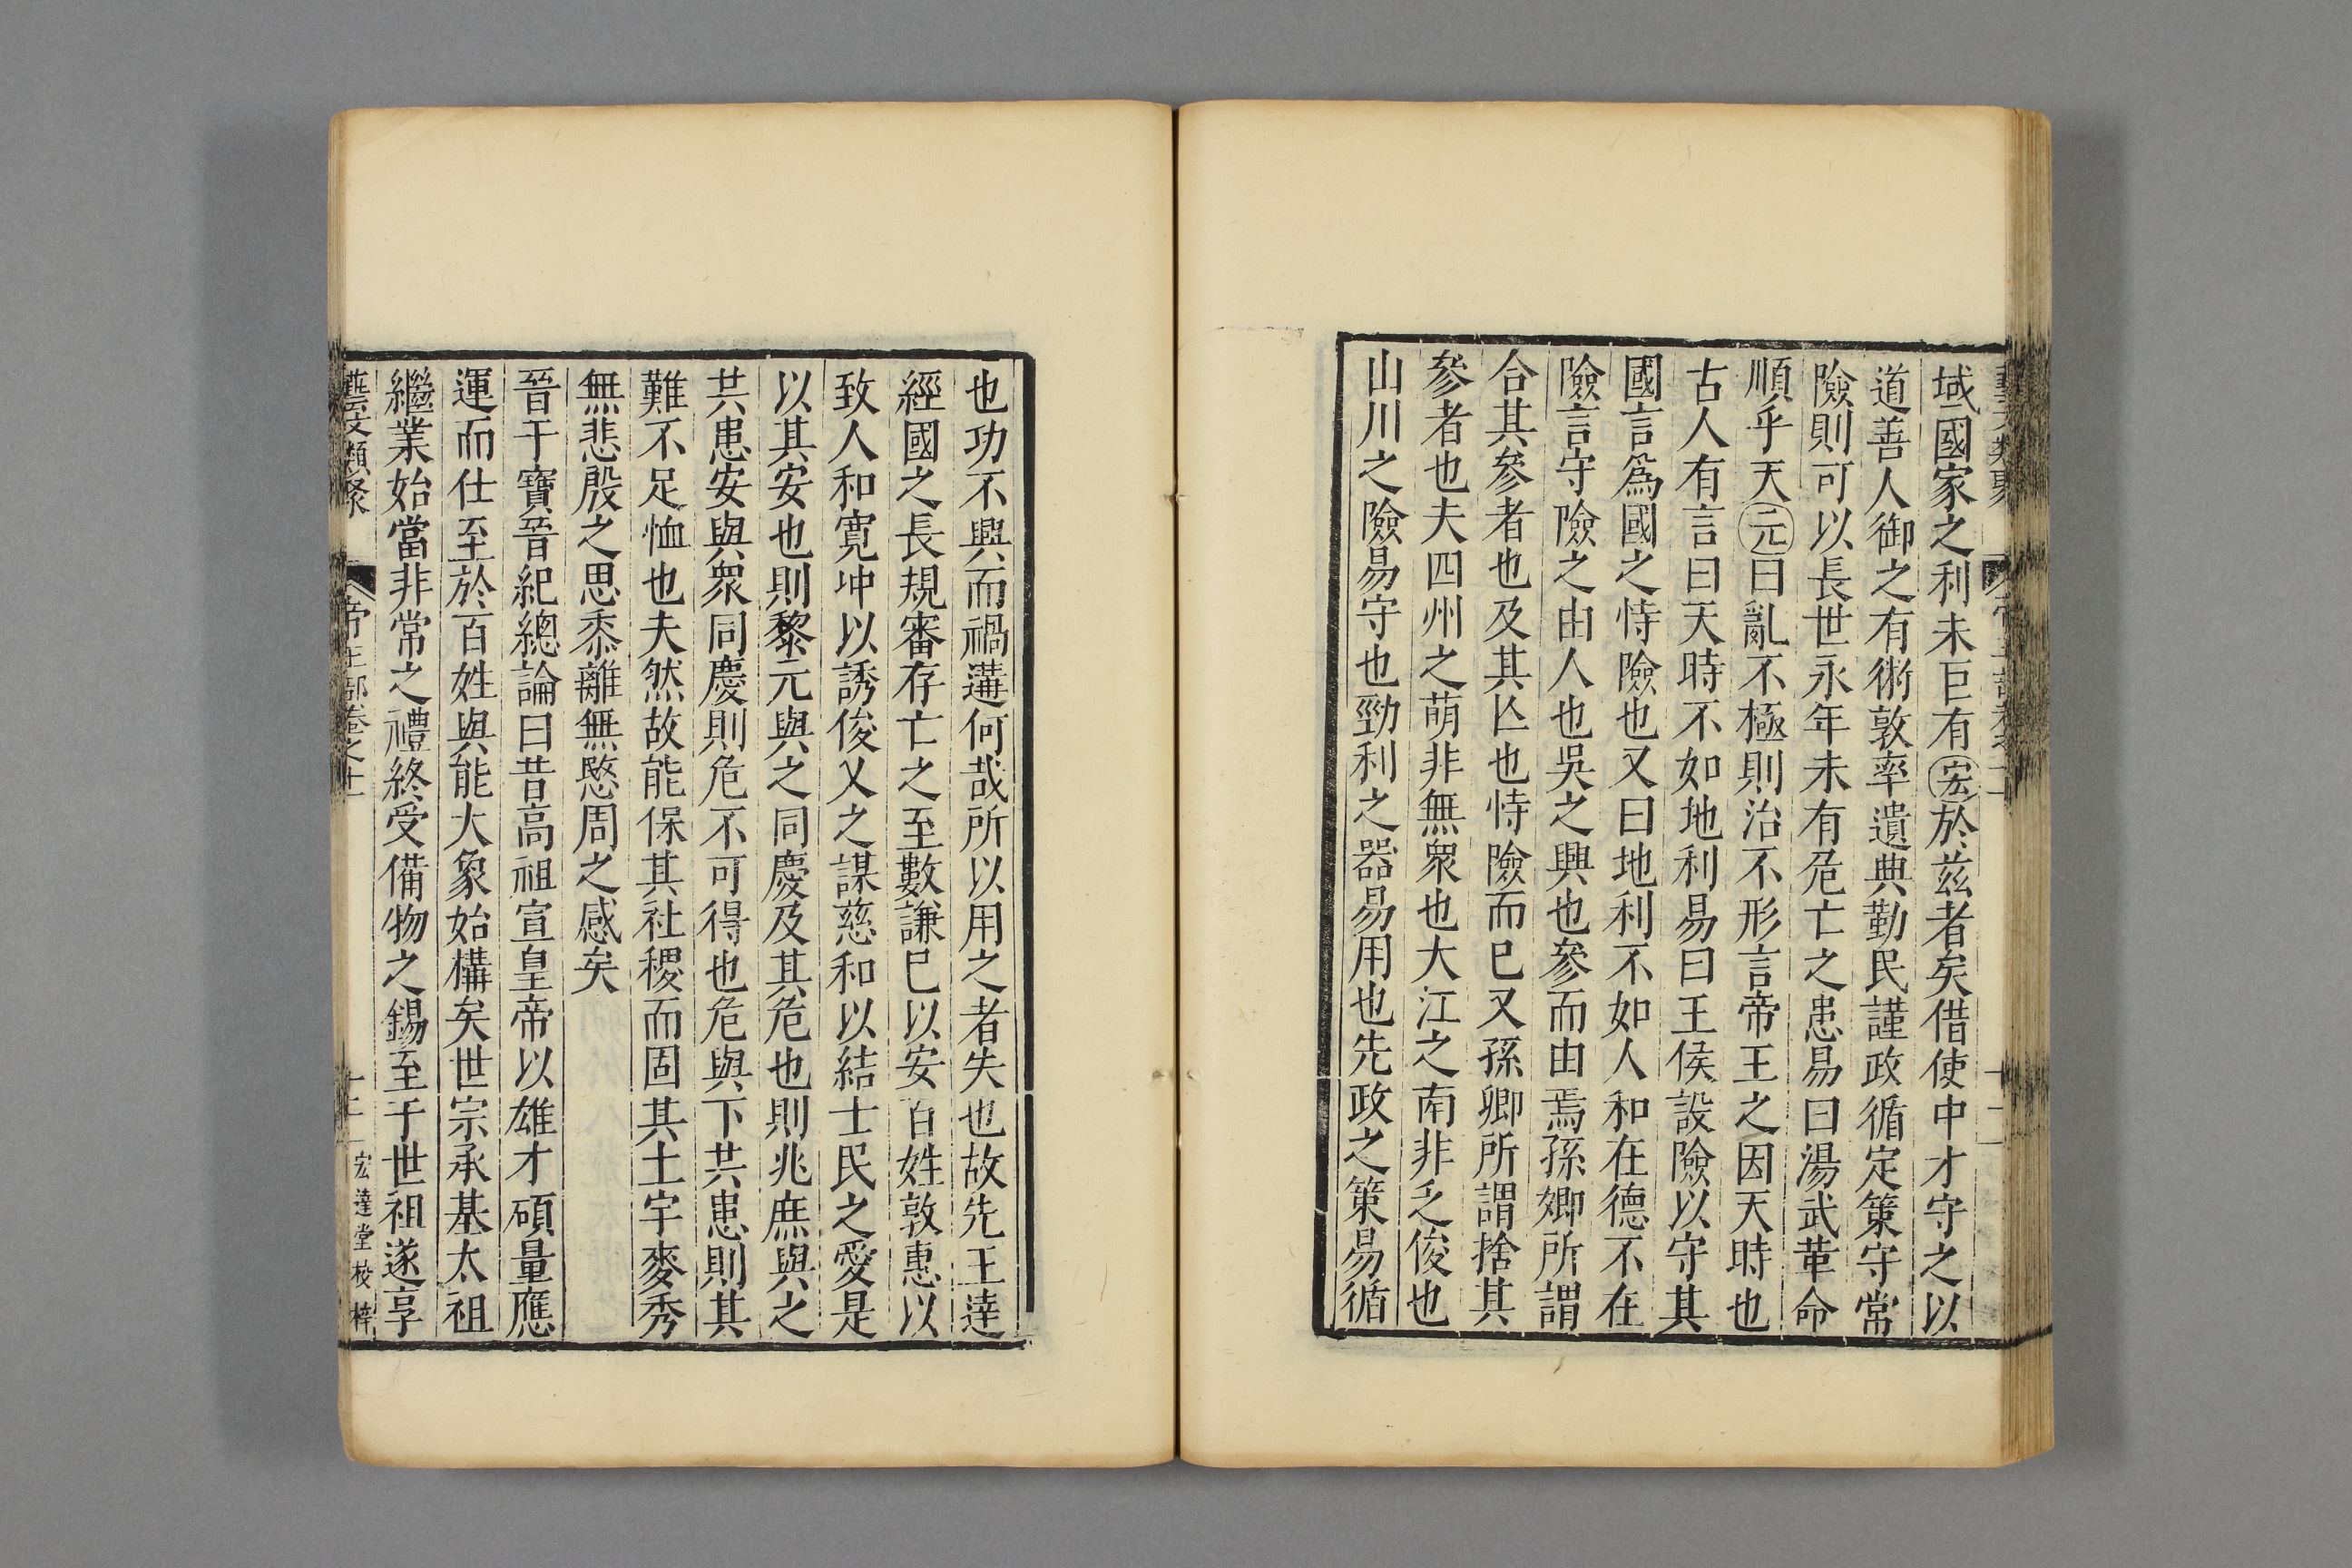 域國家之利未巨有宏於茲者矣借使中才守之以
道善人御之有術敦率遺典勤民謹政循定策守常
險則可以長世永年未有危亡之患易曰湯武革命
順乎天元曰亂不極則治不形言帝王之因天時也
古人有言曰天時不如地利易曰王侯設險以守其
國言爲國之恃險也又曰地利不如人和在德不在
險言守險之由人也吳之興也參而由焉孫卿所謂
合其參者也及其亾也恃險而已又孫卿所謂捨其
參者也夫四州之萌非無衆也大江之南非乏俊也
山川之險易守也勁利之器易用也先政之策易循
也功不興而禍遘何哉所以用之者失也故先王達
經國之長規審存亡之至數謙已以安百姓敦惠以
致人和寛冲以誘俊乂之謀慈和以結士民之愛是
以其安也則黎元與之同慶及其危也則兆庶與之
共患安與衆同慶則危不可得也危與下共患則其
難不足恤也夫然故能保其社稷而固其土宇麥秀
無悲殷之思黍離無愍周之感矣
晉干寶晉紀總論曰昔高祖宣皇帝以雄才碩量應
運而仕至於百姓與能大象始構矣世宗承基太祖
繼業始當非常之禮終受備物之錫至于世祖遂享
藝文類聚 帝王部卷之十一 十二 宏達堂校梓